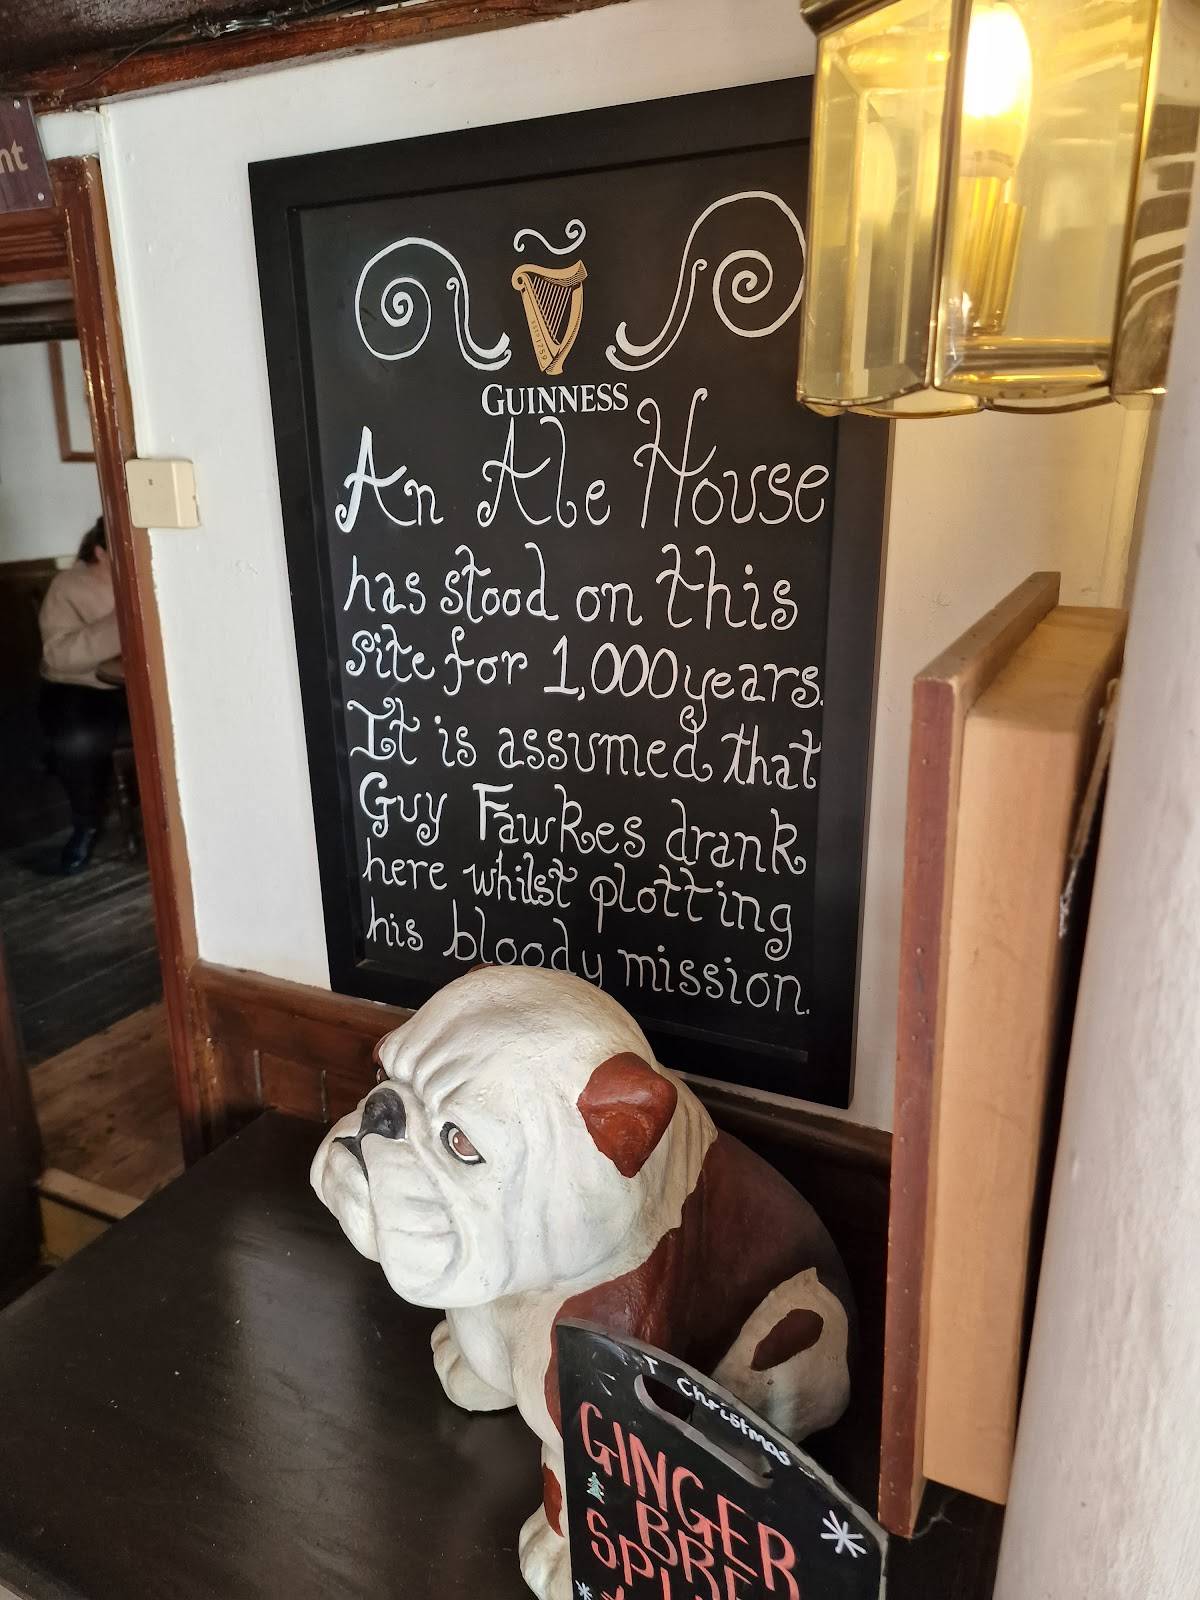 nt
GUINNESS
An Ale House
has stood on this
site for 1,000 years.
It is assumed that
Guy Fawkes drank
here whilst plotting
his bloody mission.
Christmas
GINGER
BRE